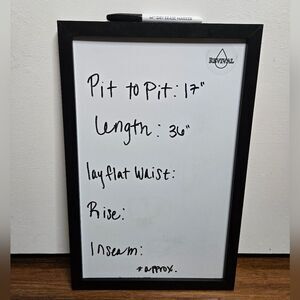 DRY ERASE MARKER
REVIVAL
Pit to Pit: 17"
Length: 36"
layflat Waist:
Rise:
Inseam:
*approx.